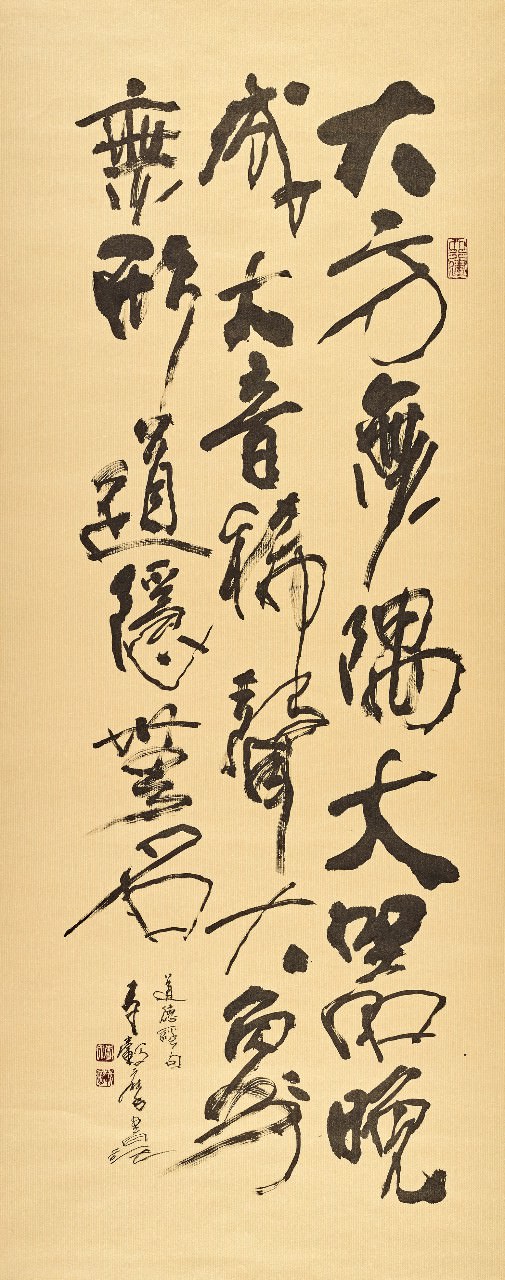 大方無隅大器晚
成大音稀聲大象
無形道隱無名
道德經句